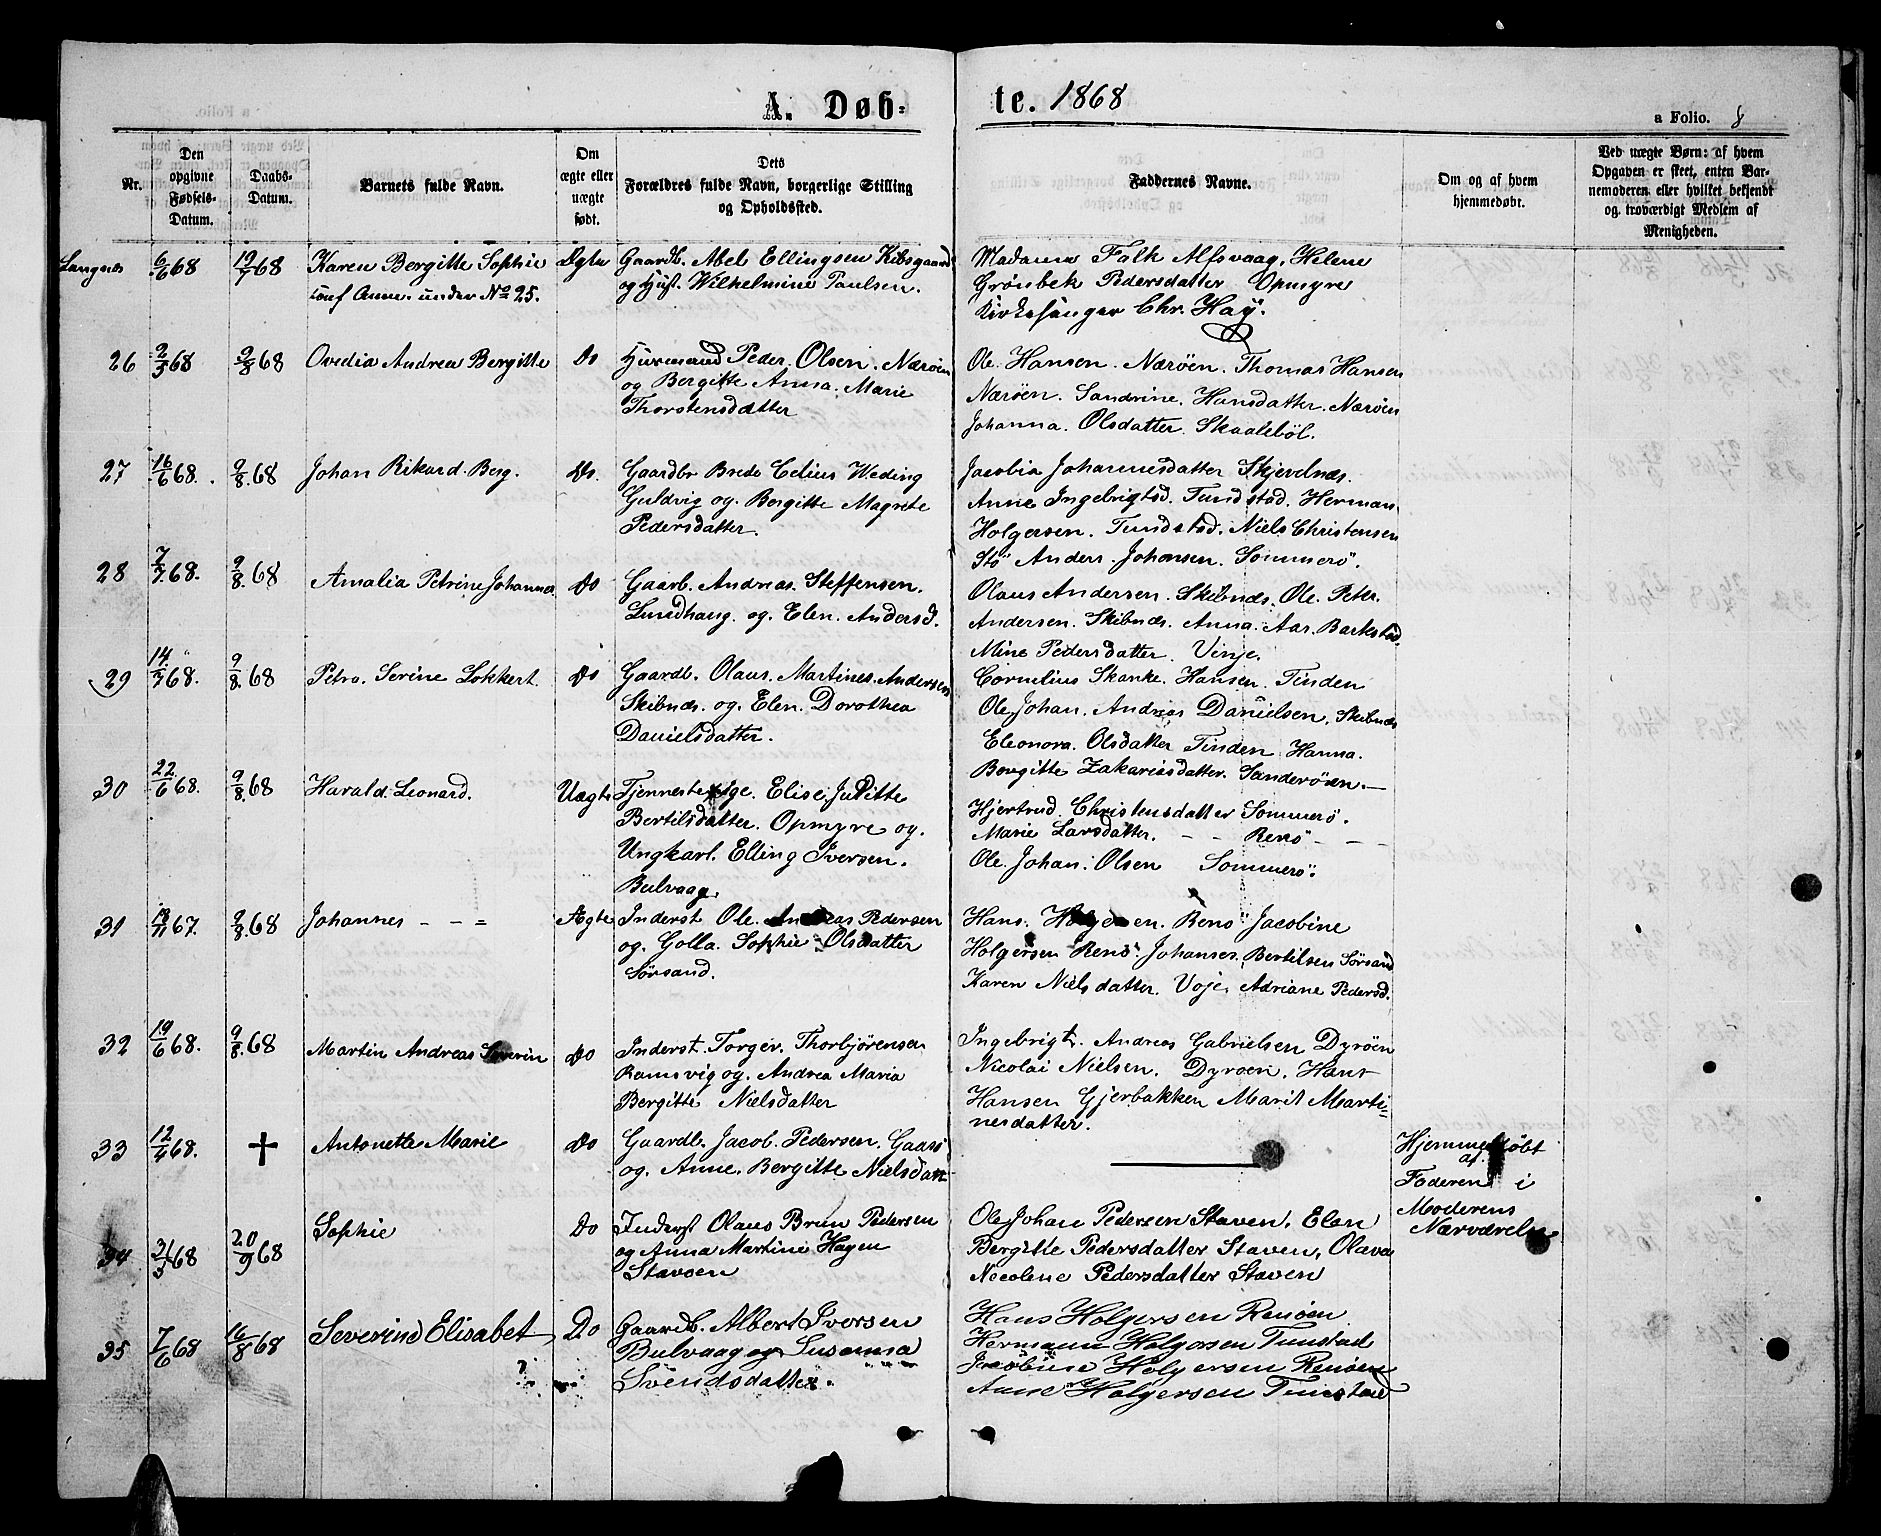 A. Døb-
te. 1868
a Folio. 8
Nr.
Den
opgivne
Fødsels-
Datum.
Daabs-
Datum.
Barnets fulde Navn.
Om
ægte eller
uægte
født.
Dets
Forældres fulde Navn, borgerlige Stilling
og Opholdssted.
Faddernes Navne.
Om og af hvem
hjemmedøbt.
Ved uægte Børn: af hvem
Opgaven er skeet, enten Bar-
nemoderen eller hvilket bekjendt
og troværdigt Medlem af
Menigheden.
Langnes 6/6 68 19/7 68 Karen Bergitte Sophie
conf Anm. under No 25.
Ægte Gaardb. Abel Ellingsen Kibsgaard
og Hust. Wilhelmine Paulsen.
Madama Falk Alfsvaag, Helene
Grønbek Pedersdatter Opmyre
Kirkesanger Chr. Høy.
26 2/5 68 9/8 68 Ovedia Andrea Bergitte Do
Husmand Peder Olsen. Nærøen
og Bergitte Anna. Marie
Thorstensdatter
Ole. Hansen. Nærøen. Thomas Hansen
Nærøen. Sandrine. Hansdatter. Nærøen
Johanna. Olsdatter. Skaalebøl.
27 16/6 68. 9/8 68 Johan Rikard. Berg. Do.
Gaardbr Brede Celius Weding
Guldvig og. Bergitte Magrete
Pedersdatter.
Jacobia Johannesdatter Skjevelnæs.
Anne Ingebrigtsd. Tundstad. Herman
Holgersen. Tundstad. Niels Christensen
Stø Anders. Johansen. Sommerø.
28 7/7 68. 9/8 68 Amalia Petrine Johanna Do
Gaarb. Andreas. Steffensen.
Lundhaug. og. Elen. Andersd.
Olaus Andersen. Skibnæs. Ole. Peter.
Andersen. Skibnæs. Anna. Aar. Barkestad
Mine Pedersdatter. Vinje.
29 14/7 68. 9/8 68 Petra. Serine Lokkert. Do
Gaardb. Olaus. Martines. Andersen
Skibnæs. og. Elen. Dorothea
Danielsdatter.
Cornelius Skanke. Hansen. Tinden
Ole. Johan. Andreas Danielsen. Skibnæs
Eleonora. Olsdatter Tinden Hanna.
Bergitte Zakariasdatter. Sanderøen.
30 22/6 68. 9/8 68 Harald. Leonard. Uægte
Tjenestepige. Elise. Juditte
Bertilsdatter. Opmyre og.
Ungkarl. Elling Iversen.
Bulvaag.
Hjertrud. Christensdatter Sommerø.
Marie Larsdatter. - - Renø - - -
Ole. Johan. Olsen Sommerø.
31 /11 67. 9/8 68 Johannes - - = Ægte
Inderst Ole. Andreas Pedersen
og. Golla. Sophie. Olsdatter
Sørsand.
Hans. Holgersen. Renø Jacobine
Holgersen Renø. Johannes. Bertilsen Sørsand
Karen Nielsdatter. Voje. Adriane Pedersd.
32 19/6 68. 9/8 68 Martin Andreas Severin Do
Inderst. Torger. Thorbjørnsen
Ramsvig og. Andrea Maria
Bergitte Nielsdatter
Ingebrigt. Andreas Gabrielsen Dyrøen
Nicolai Nielsen. Dyrøen. Hans
Hansen Gjerbakken Marit Marti-
nesdatter.
33 12/4 68. + Antonette Marie Do
Gaardb. Jacob. Pedersen. Gaasø
og. Anne. Bergitte Nielsdatt
Hjemmedøbt
af
Faderen i
Moderens
Nærværelse
34 31/5 68 20/9 68 Sophie Do
Inderst Olaus Brun Pedersen
og Anna Martine Hagen
Stavøen
Ole Johan Pedersen Staven. Elen
Bergitte Pedersdatter Staven, Olava
Nicoline Pedersdatter Staven
35 7/6 68 16/8 68 Severine Elisabet Do
Gaardb. Albert Iversen
Bulvaag og Susanna
Svendsdatter.
Hans Holgersen Renøen
Hermann Holgersen Tunstad
Jacobine Holgersen Renøen
Anne Holgersen Tunstad